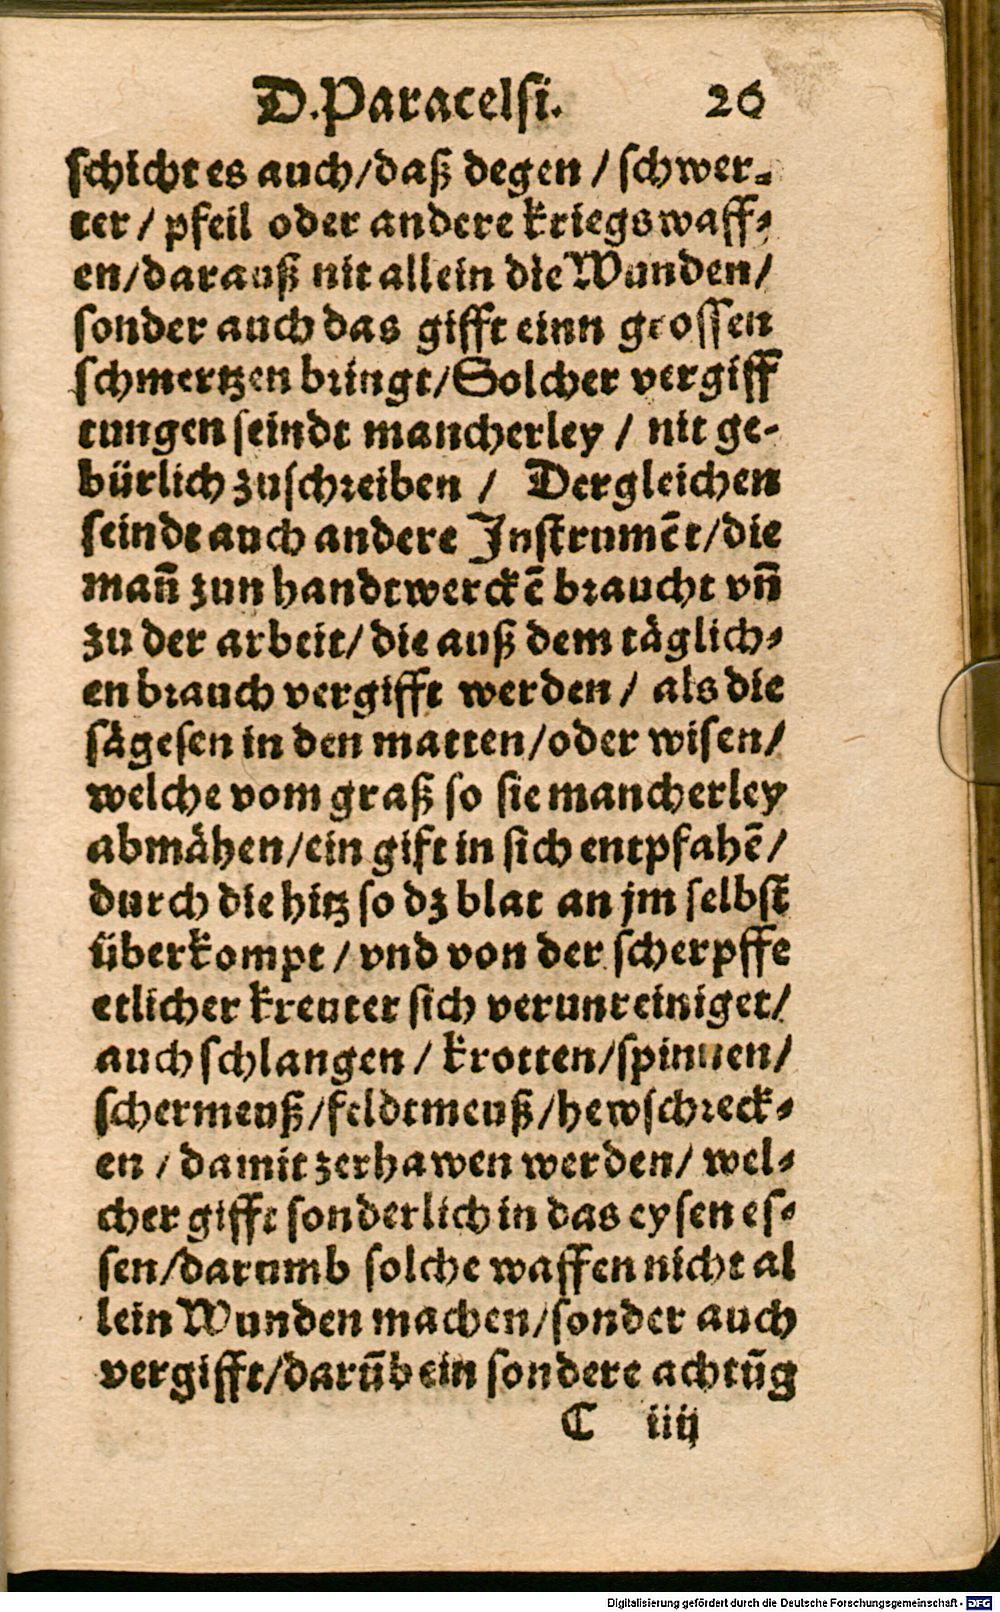 D. Paracelsi. 26
schicht es auch/daß degen / schwer-
ter / pfeil oder andere kriegswaff-
en/darauß nit allein die Wunden/
sonder auch das gifft einn grossen
schmertzen bringt/Solcher vergiff
tungen seindt mancherley / nit ge-
bürlich zuschreiben / Dergleichen
seindt auch andere Instrumēt/die
mañ zun handtwerckē braucht vñ
zu der arbeit/die auß dem täglich-
en brauch vergifft werden / als die
sägesen in den matten/oder wisen/
welche vom graß so sie mancherley
abmähen/ein gift in sich entpfahē/
durch die hitz so dz blat an jm selbst
überkompt / vnd von der scherpffe
etlicher kreuter sich verunreiniget/
auch schlangen / krotten/spinnen/
schermeuß/feldtmeuß/hewschreck-
en / damit zerhawen werden/ wel-
cher gifft sonderlich in das eysen es-
sen/darumb solche waffen nicht al
lein Wunden machen/sonder auch
vergifft/darūb ein sondere achtūg
C iiij
Digitalisierung gefördert durch die Deutsche Forschungsgemeinschaft - DFG